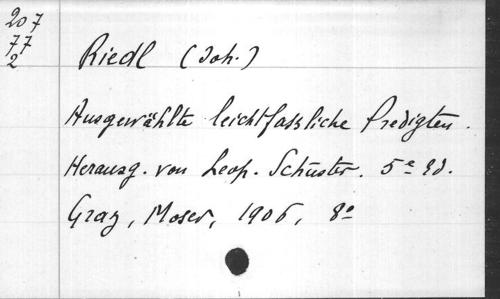 207
77
2
Riedl (Joh.)
Ausgewählte leichtfassliche Predigten.
Herausg. von Leop. Schuster. 5e Ed.
Graz, Moser, 1906, 8°